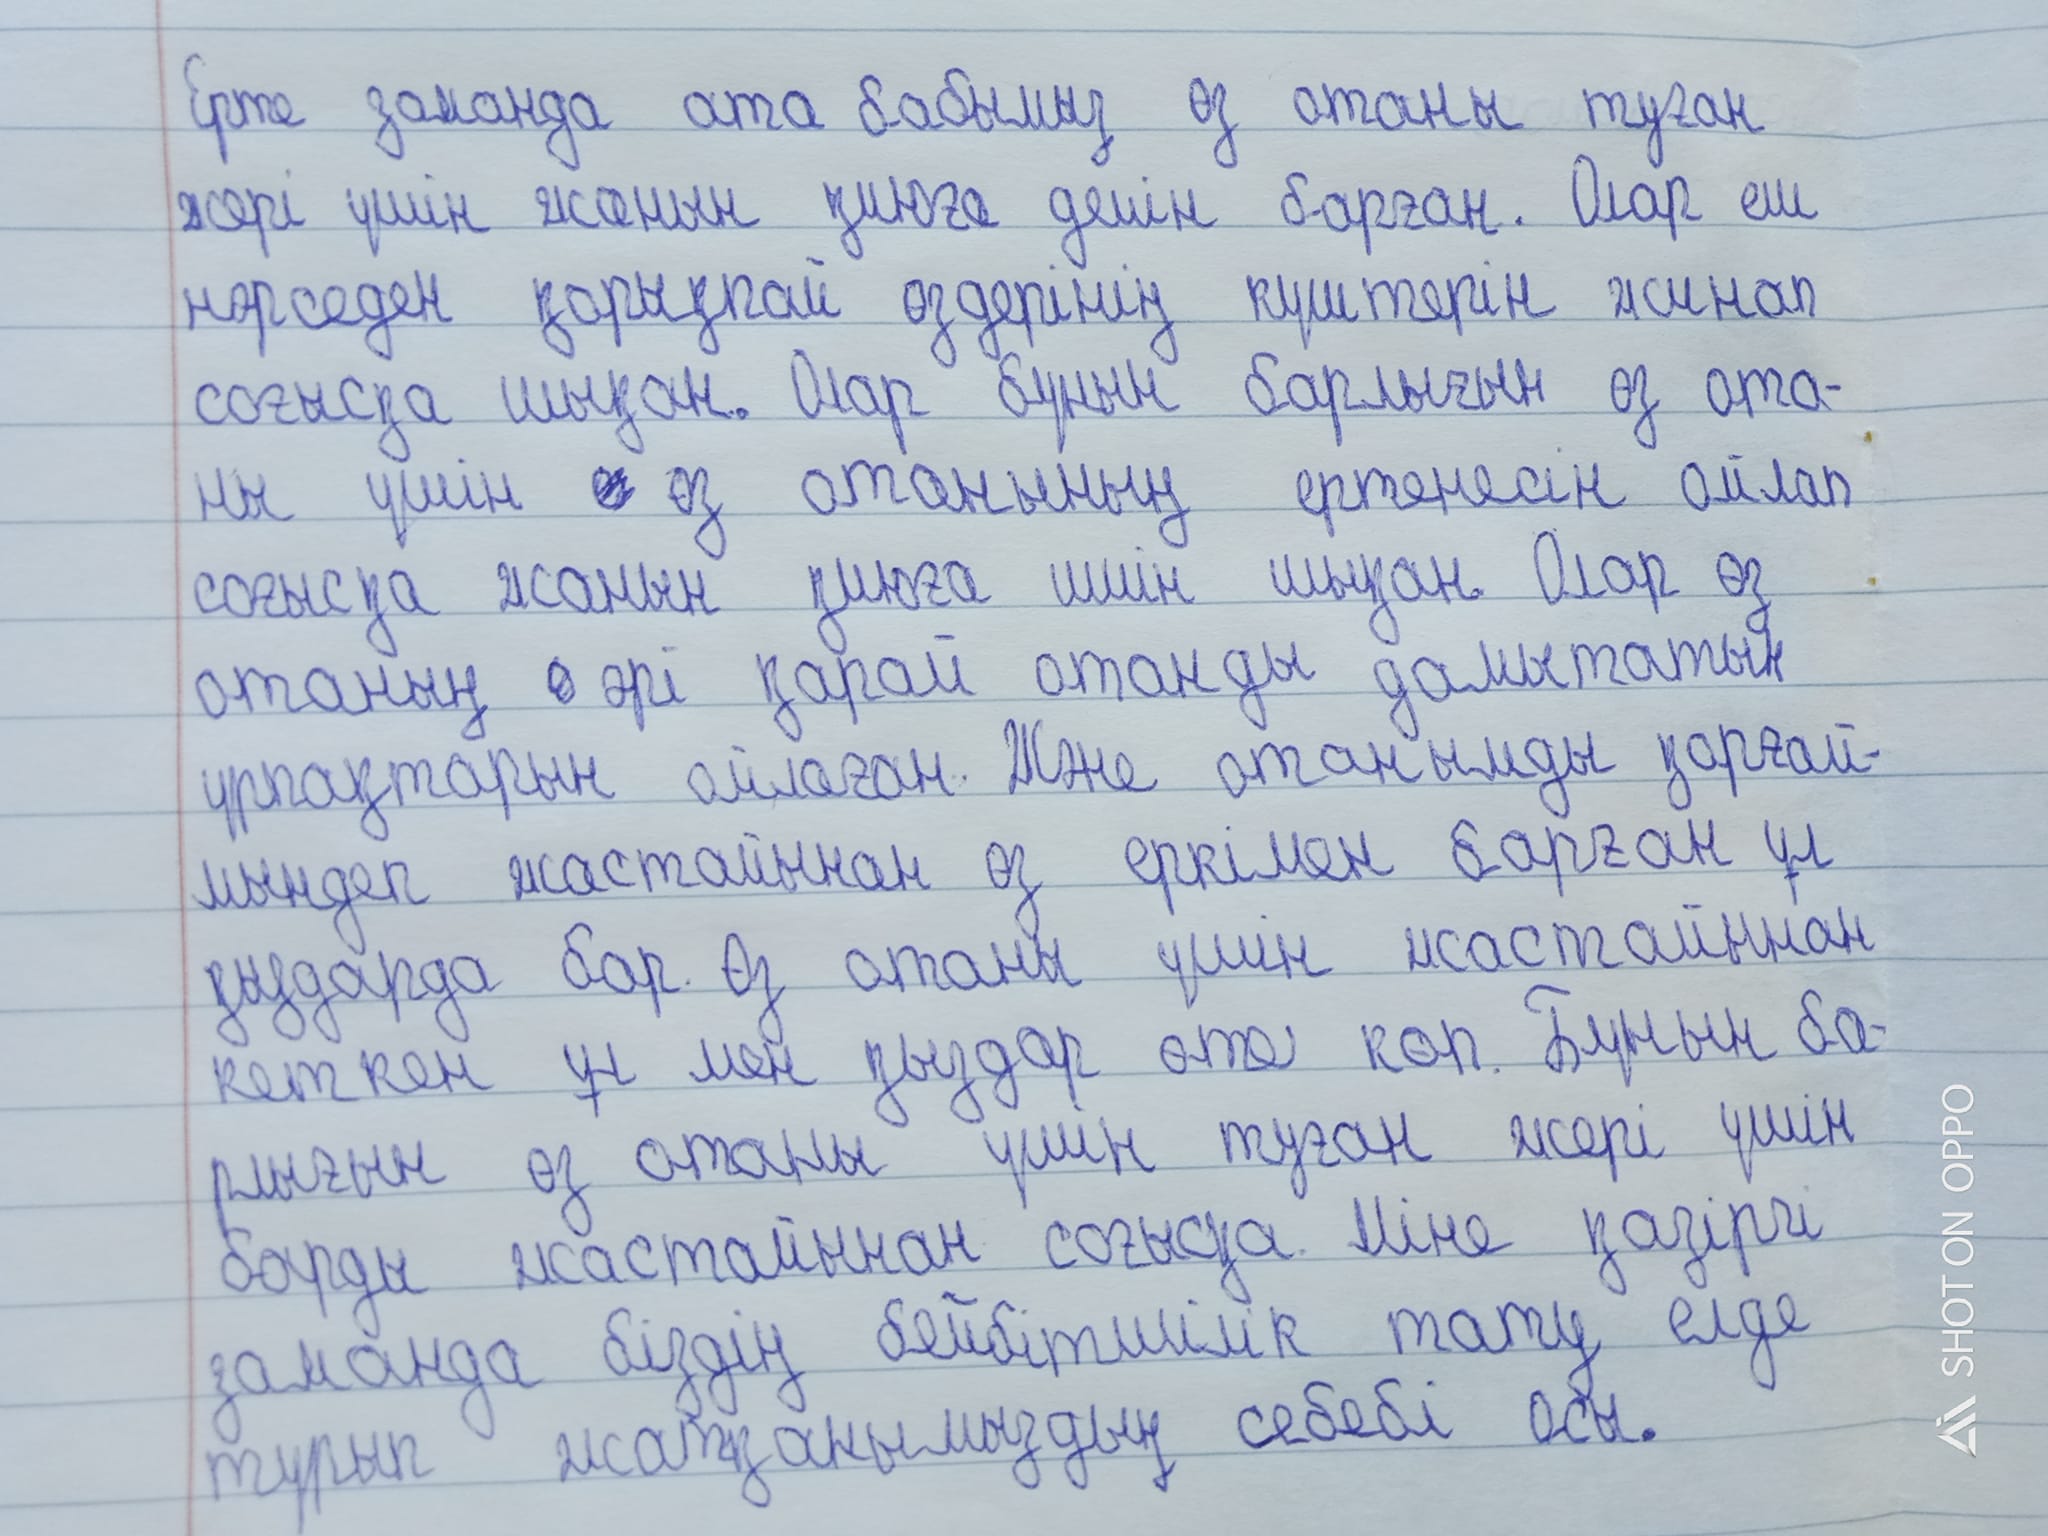 Ерте заманда ата бабымыз өз отаны туған
жері үшін жанын қиюға дейін барған. Олар еш
нәрседен қорықпай өздерінің күштерін жинап
соғысқа шыққан. Олар бунын барлығын өз ота-
ны үшін өз отанының ертенесін ойлап
соғысқа жанын қиюға шін шыққан. Олар өз
отаның әрі қарай отанды дамытатын
ұрпақтарын ойлаған. Және отанымды қорғай-
мындеп жастайынан өз еркімен барған ұл
қыздарда бар. Өз отаны үшін жастайыннан
кеткен ұл мен қыздар өте көп. Бунын ба-
рлығын өз отаны үшін туған жері үшін
барды жастайыннан соғысқа. Міне қазіргі
заманда біздің бейбітшілік тату елде
тұрып жатқанымыздың себебі осы.
SHOT ON OPPO